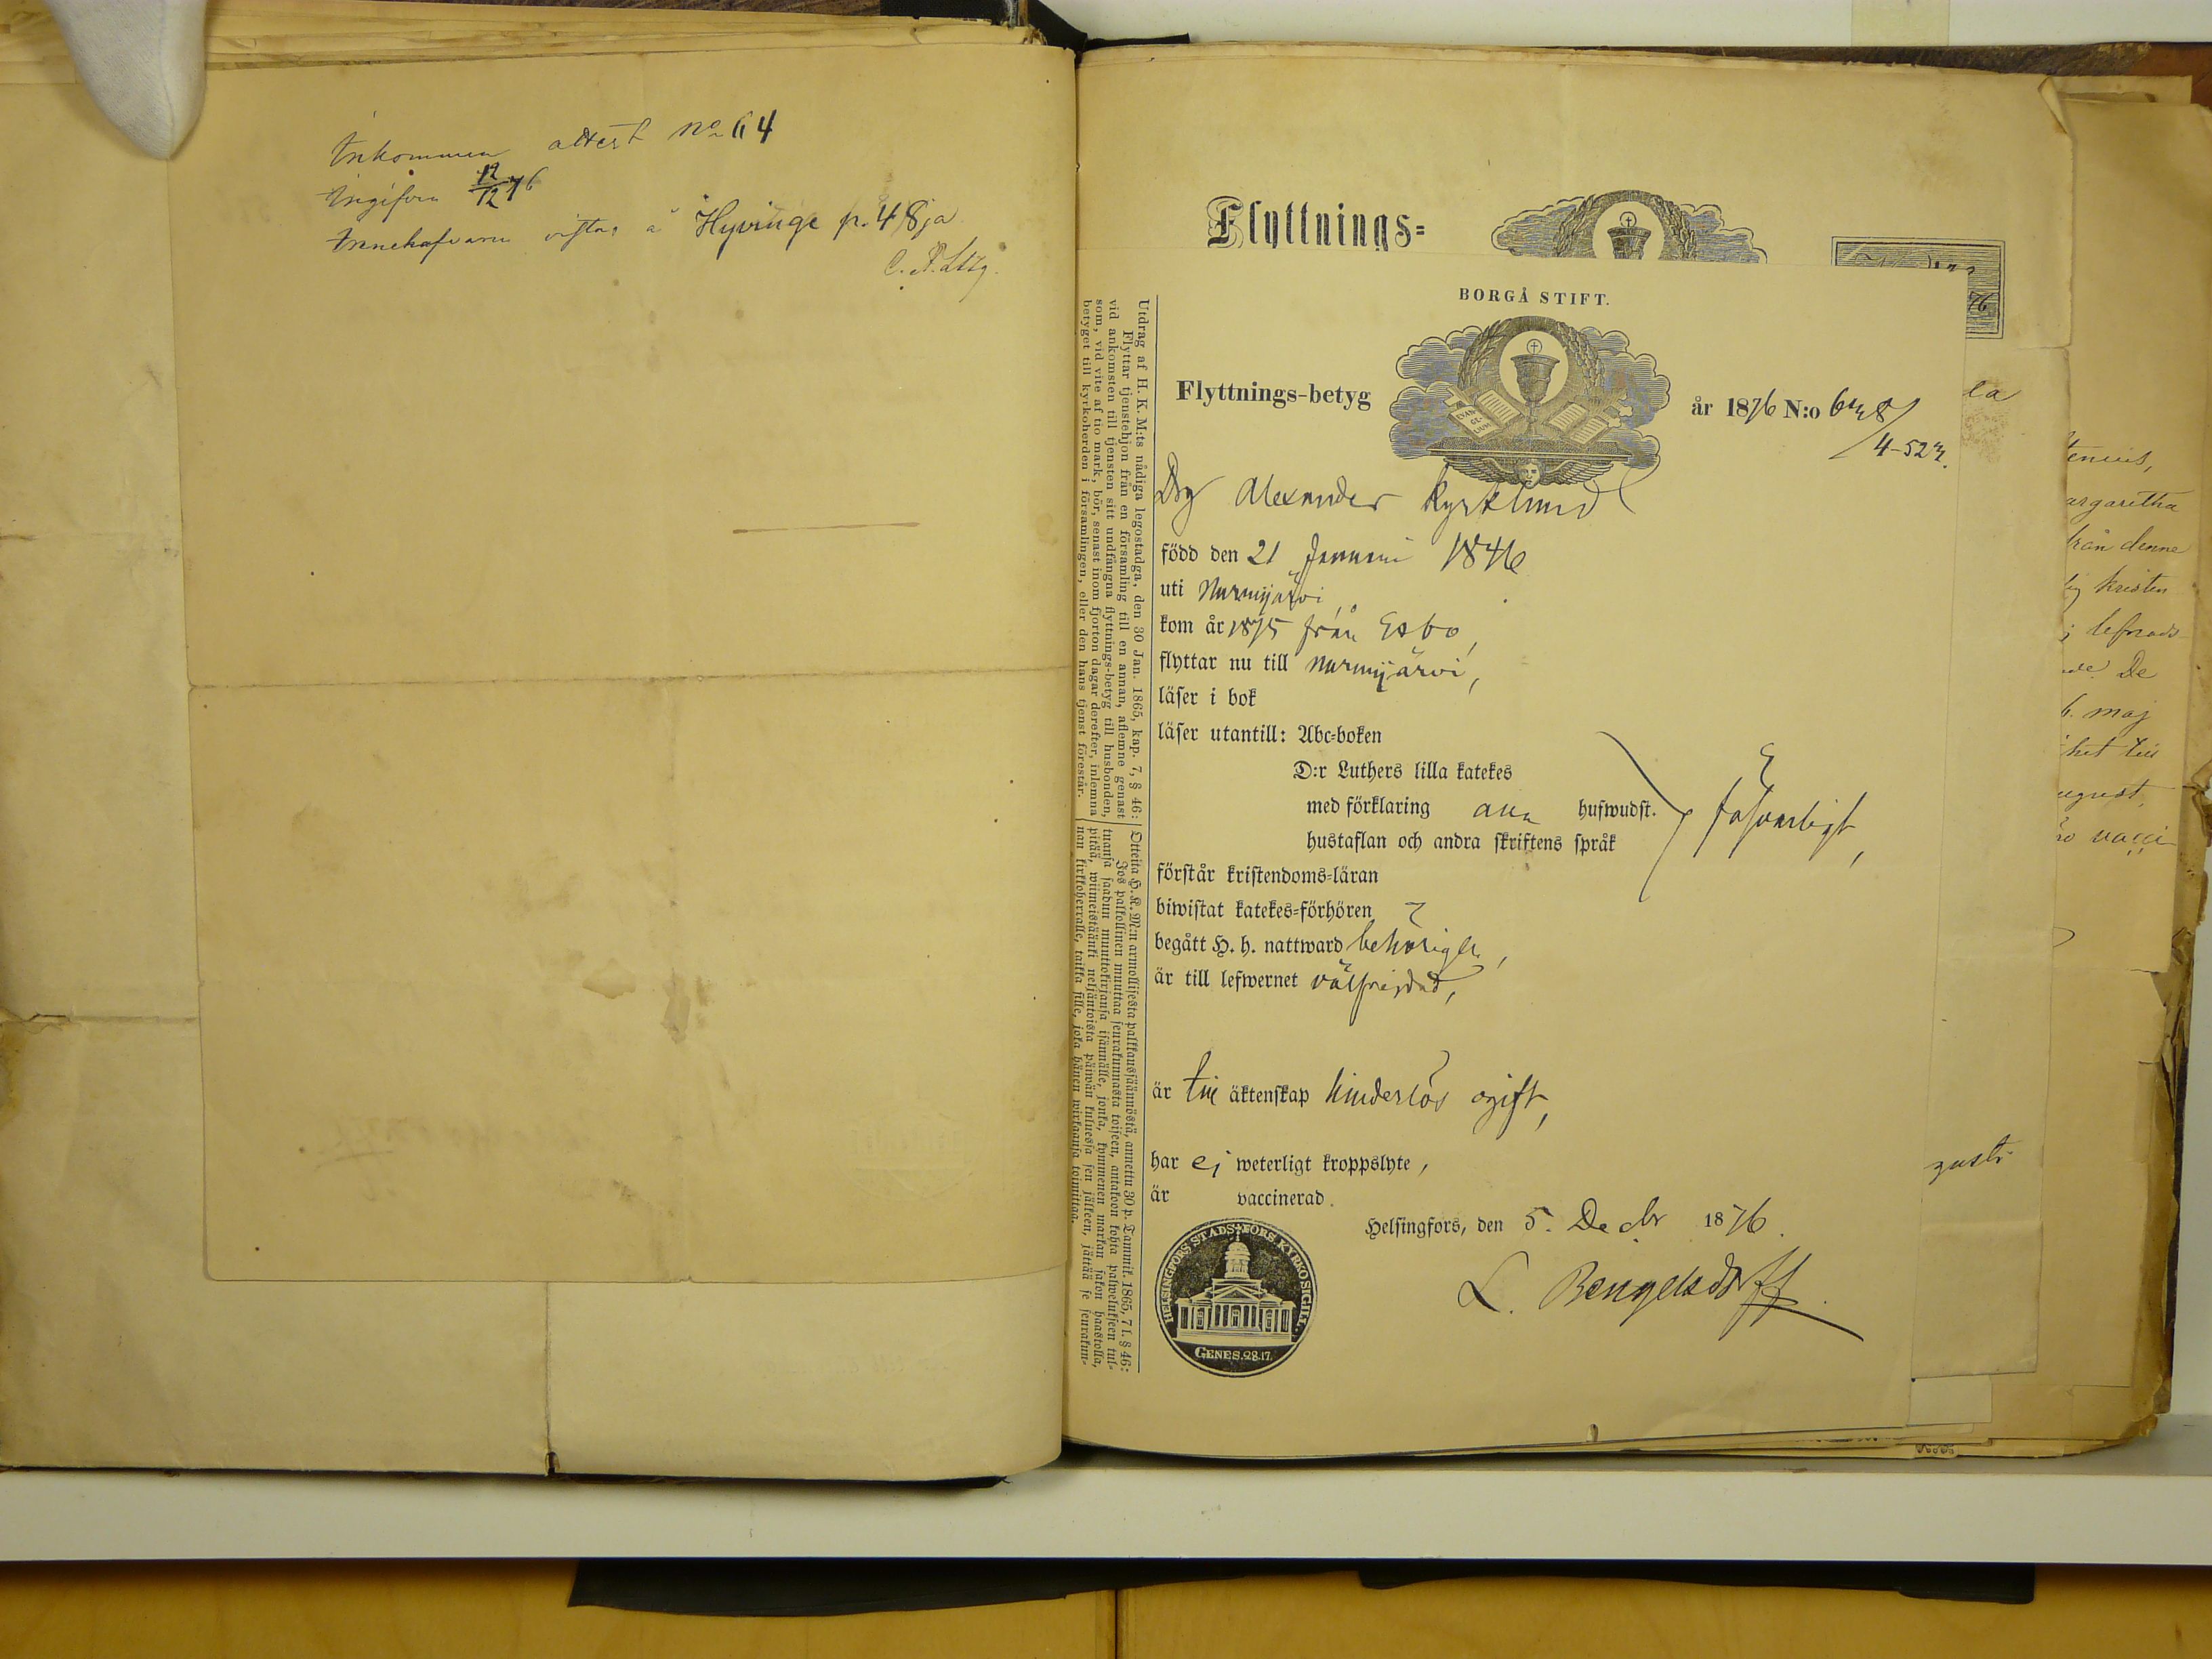 Inkommen attest No 64
Ingifven 12/12 76
Innehafvaren vistas å Hyvinge p. 48 ja
Flyttnings=
BORGÅ STIFT.
Flyttnings-betyg
EVAN-
GE-
LIUM
år 1876 N:o
4-52
Drg Alexander Kyrklund
född den 21 Januari 1846
uti Nurmijärvi
kom år 1875 från Esbo,
flyttar nu till Nurmijärvi,
läser i bok
läser utantill: Abc=boken
D:r Luthers lilla katekes
med förklaring alla hufwudst.
hustaflan och andra skriftens språk
försvarligt,
förstår kristendoms=läran
biwistat katekes=förhören
begått H. h. nattward behörigen,
är till lefwernet välfrejdad,
är till äktenskap hinderlös ogift,
har ej weterligt kroppslyte,
är vaccinerad.
Helsingfors, den 5. Decbr 1876.
L. Bengelsdorff
HELSINGFORS STADSFÖRS. KYRKO SIGILL.
GENES. 28.17.
Utdrag af H. K. M:ts nådiga legostadga, den 30 Jan. 1865, kap. 7, § 46:
Flyttar tjenstehjon från en församling till en annan, aflemne genast
vid ankomsten till tjensten sitt undfångna flyttnings-betyg till husbonden,
som, vid vite af tio mark, bör, senast inom fjorton dagar derefter, inlemna
betyget till kyrkoherden i församlingen, eller den hans tjenst förestår.
Otteita H. K. M:n armollisesta palkkaussäännöstä, annettu 30 p. Tammik. 1865, 7 l. § 46:
Jos palkollinen muuttaa seurakunnasta toiseen, antakoon kohta palwelukseen tul=
tuansa saadun muuttokirjansa isännälle, jonka, kymmenen markan sakon haastolla,
pitää, wiimeistäänki neljäntoista päiwän kuluessa sen jälkeen, jättää se seurakun=
nan kirkkoherralle, taikka sille, joka hänen wirkaansa toimittaa.
la
argaretha
från denne
kristen
lefnads-
De
maj
het till
vacci-